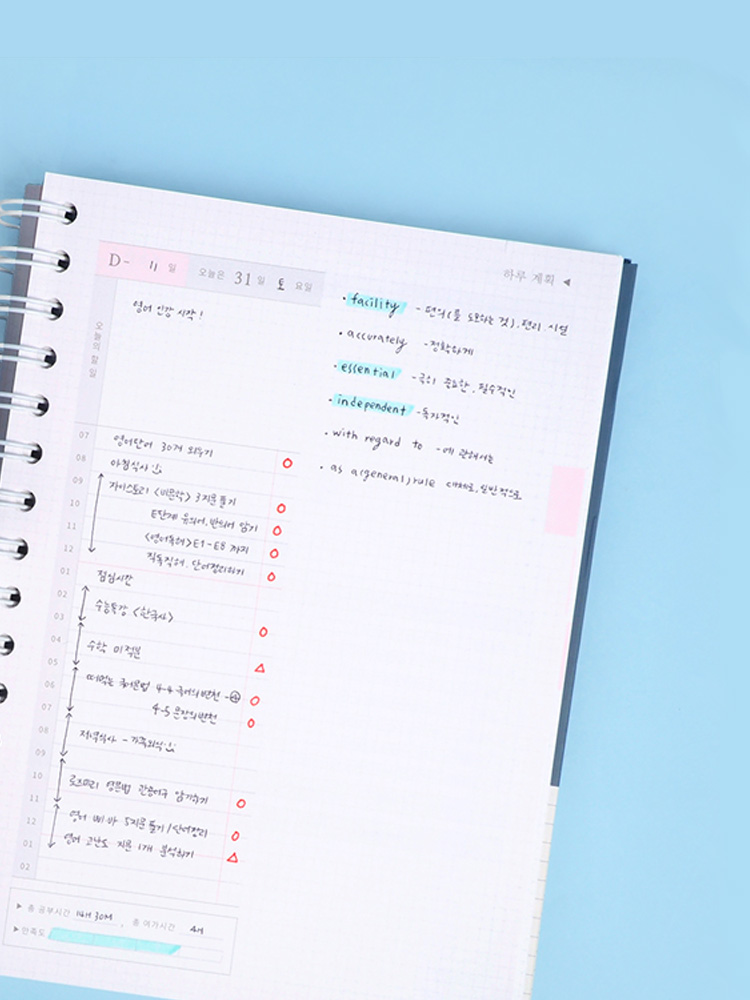 하루 계획 ◀
D- 11 일 오늘은 31 일 토 요일
오늘의 할 일
영어 인강 시작!
• facility - 편의(를 도모하는 것), 편리 시설
• accurately - 정확하게
• essential - 극히 중요한, 필수적인
• independent - 독자적인
• with regard to - 에 관해서는
• as a(general) rule 대체로, 일반적으로
07
영어단어 30개 외우기
08
아침식사
09
자이스토리 <비문학> 3지문 풀기
10
E단계 유의어, 반의어 암기
11
<영어독해> E1-E8 까지
12
직독직해, 단어정리하기
01
점심시간
02
수능특강 <한국사>
03
04
수학 미적분
05
떠먹는 국어문법 4-4 국어의 변천
06
4-5 문장의 변천
07
08
저녁식사 - 가족외식
09
10
로즈리 영문법 관용어구 암기하기
11
영어 5지문 풀기 / 단어정리
12
영어 고난도 지문 1개 분석하기
01
02
▶ 총 공부시간 14H 30M , 총 여가시간 4H
▶ 만족도